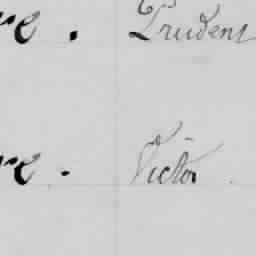 re. Prudent
re. Victor